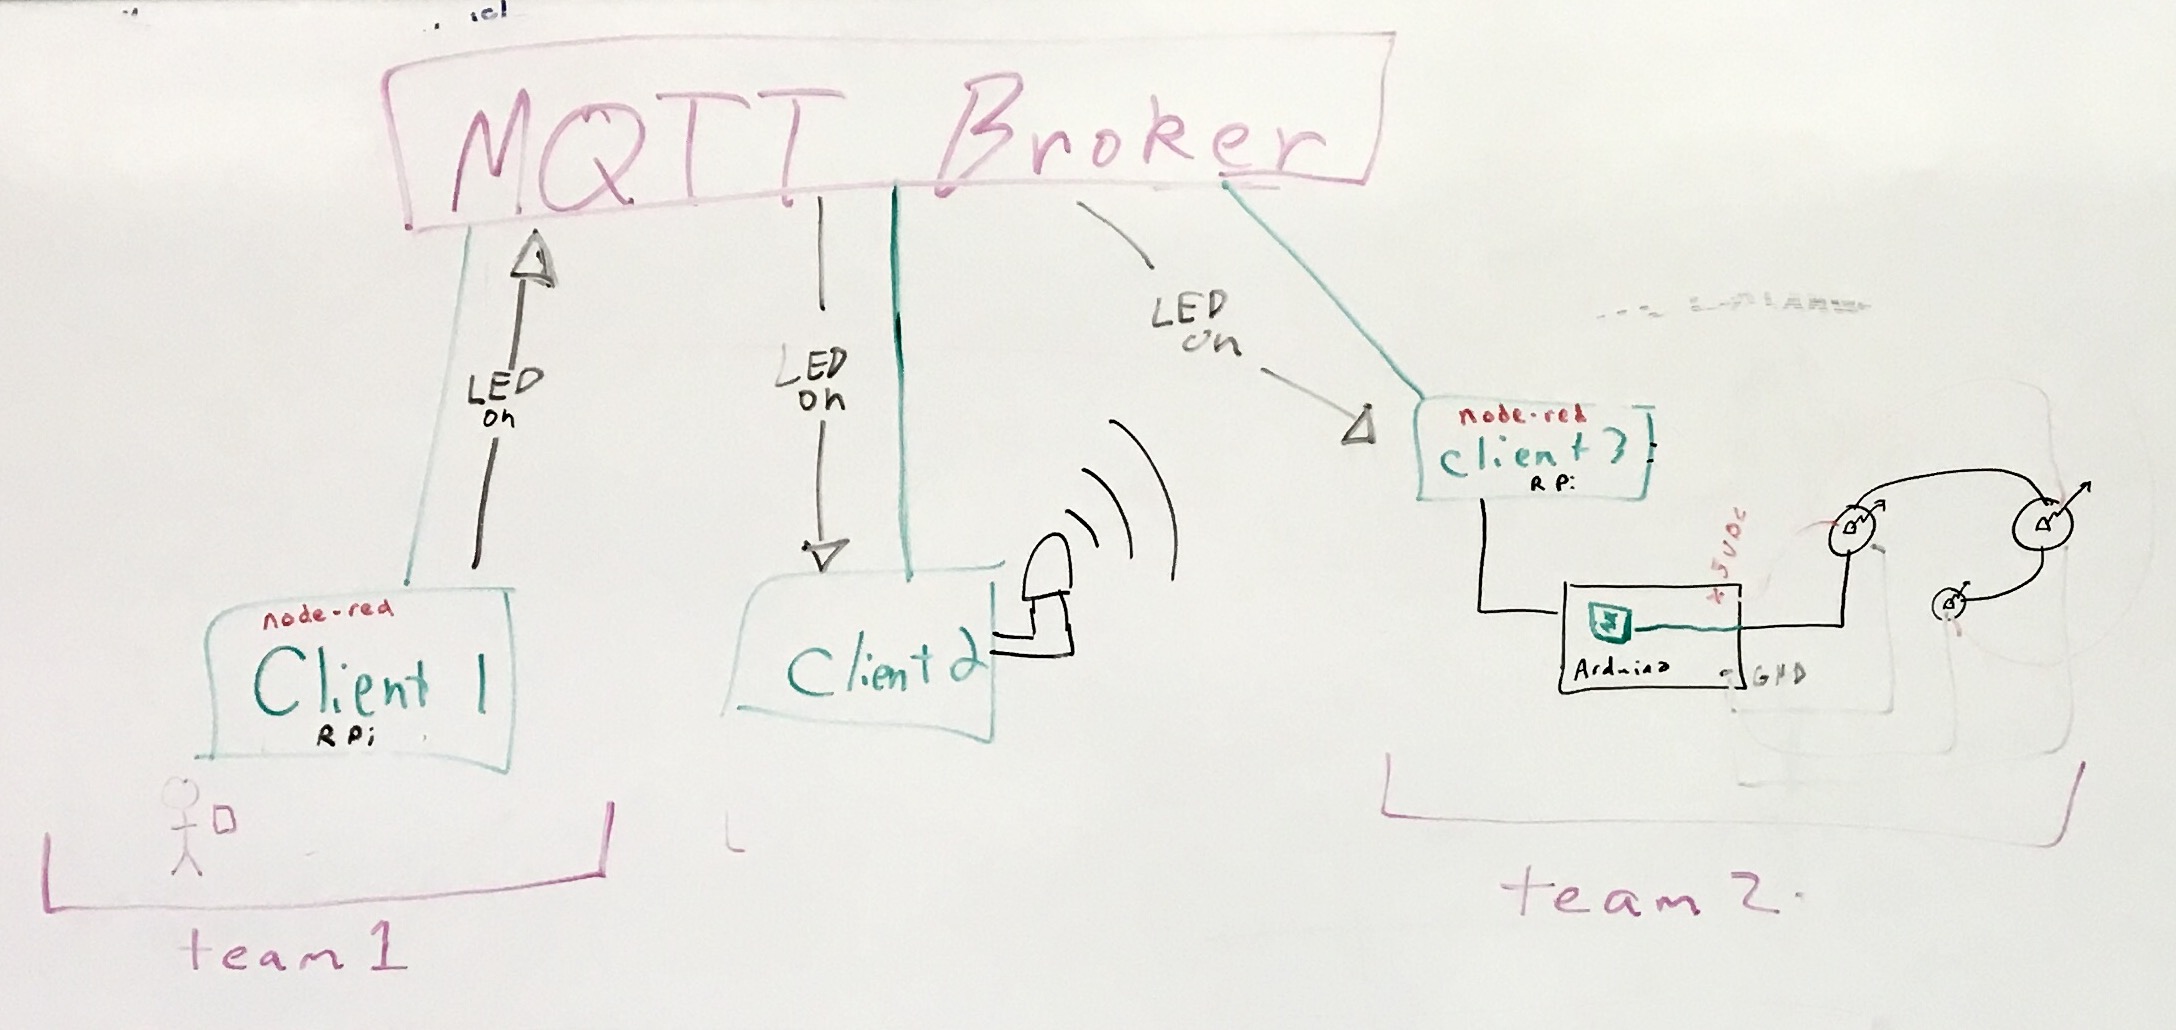 MQTT Broker
LED
on
LED
on
LED
on
node-red
Client 1
R Pi
Client 2
node-red
Client 3
R Pi
+ 5VDC
Arduino
- GND
team 1
team 2